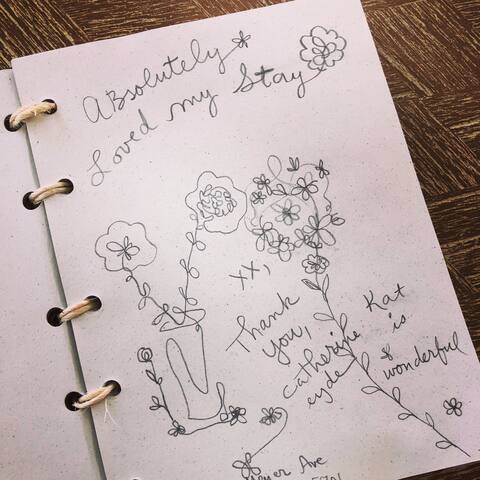 Absolutely
Loved my Stay
xx,
Thank
you,
Catherine
Kat
is
wonderful
Ave